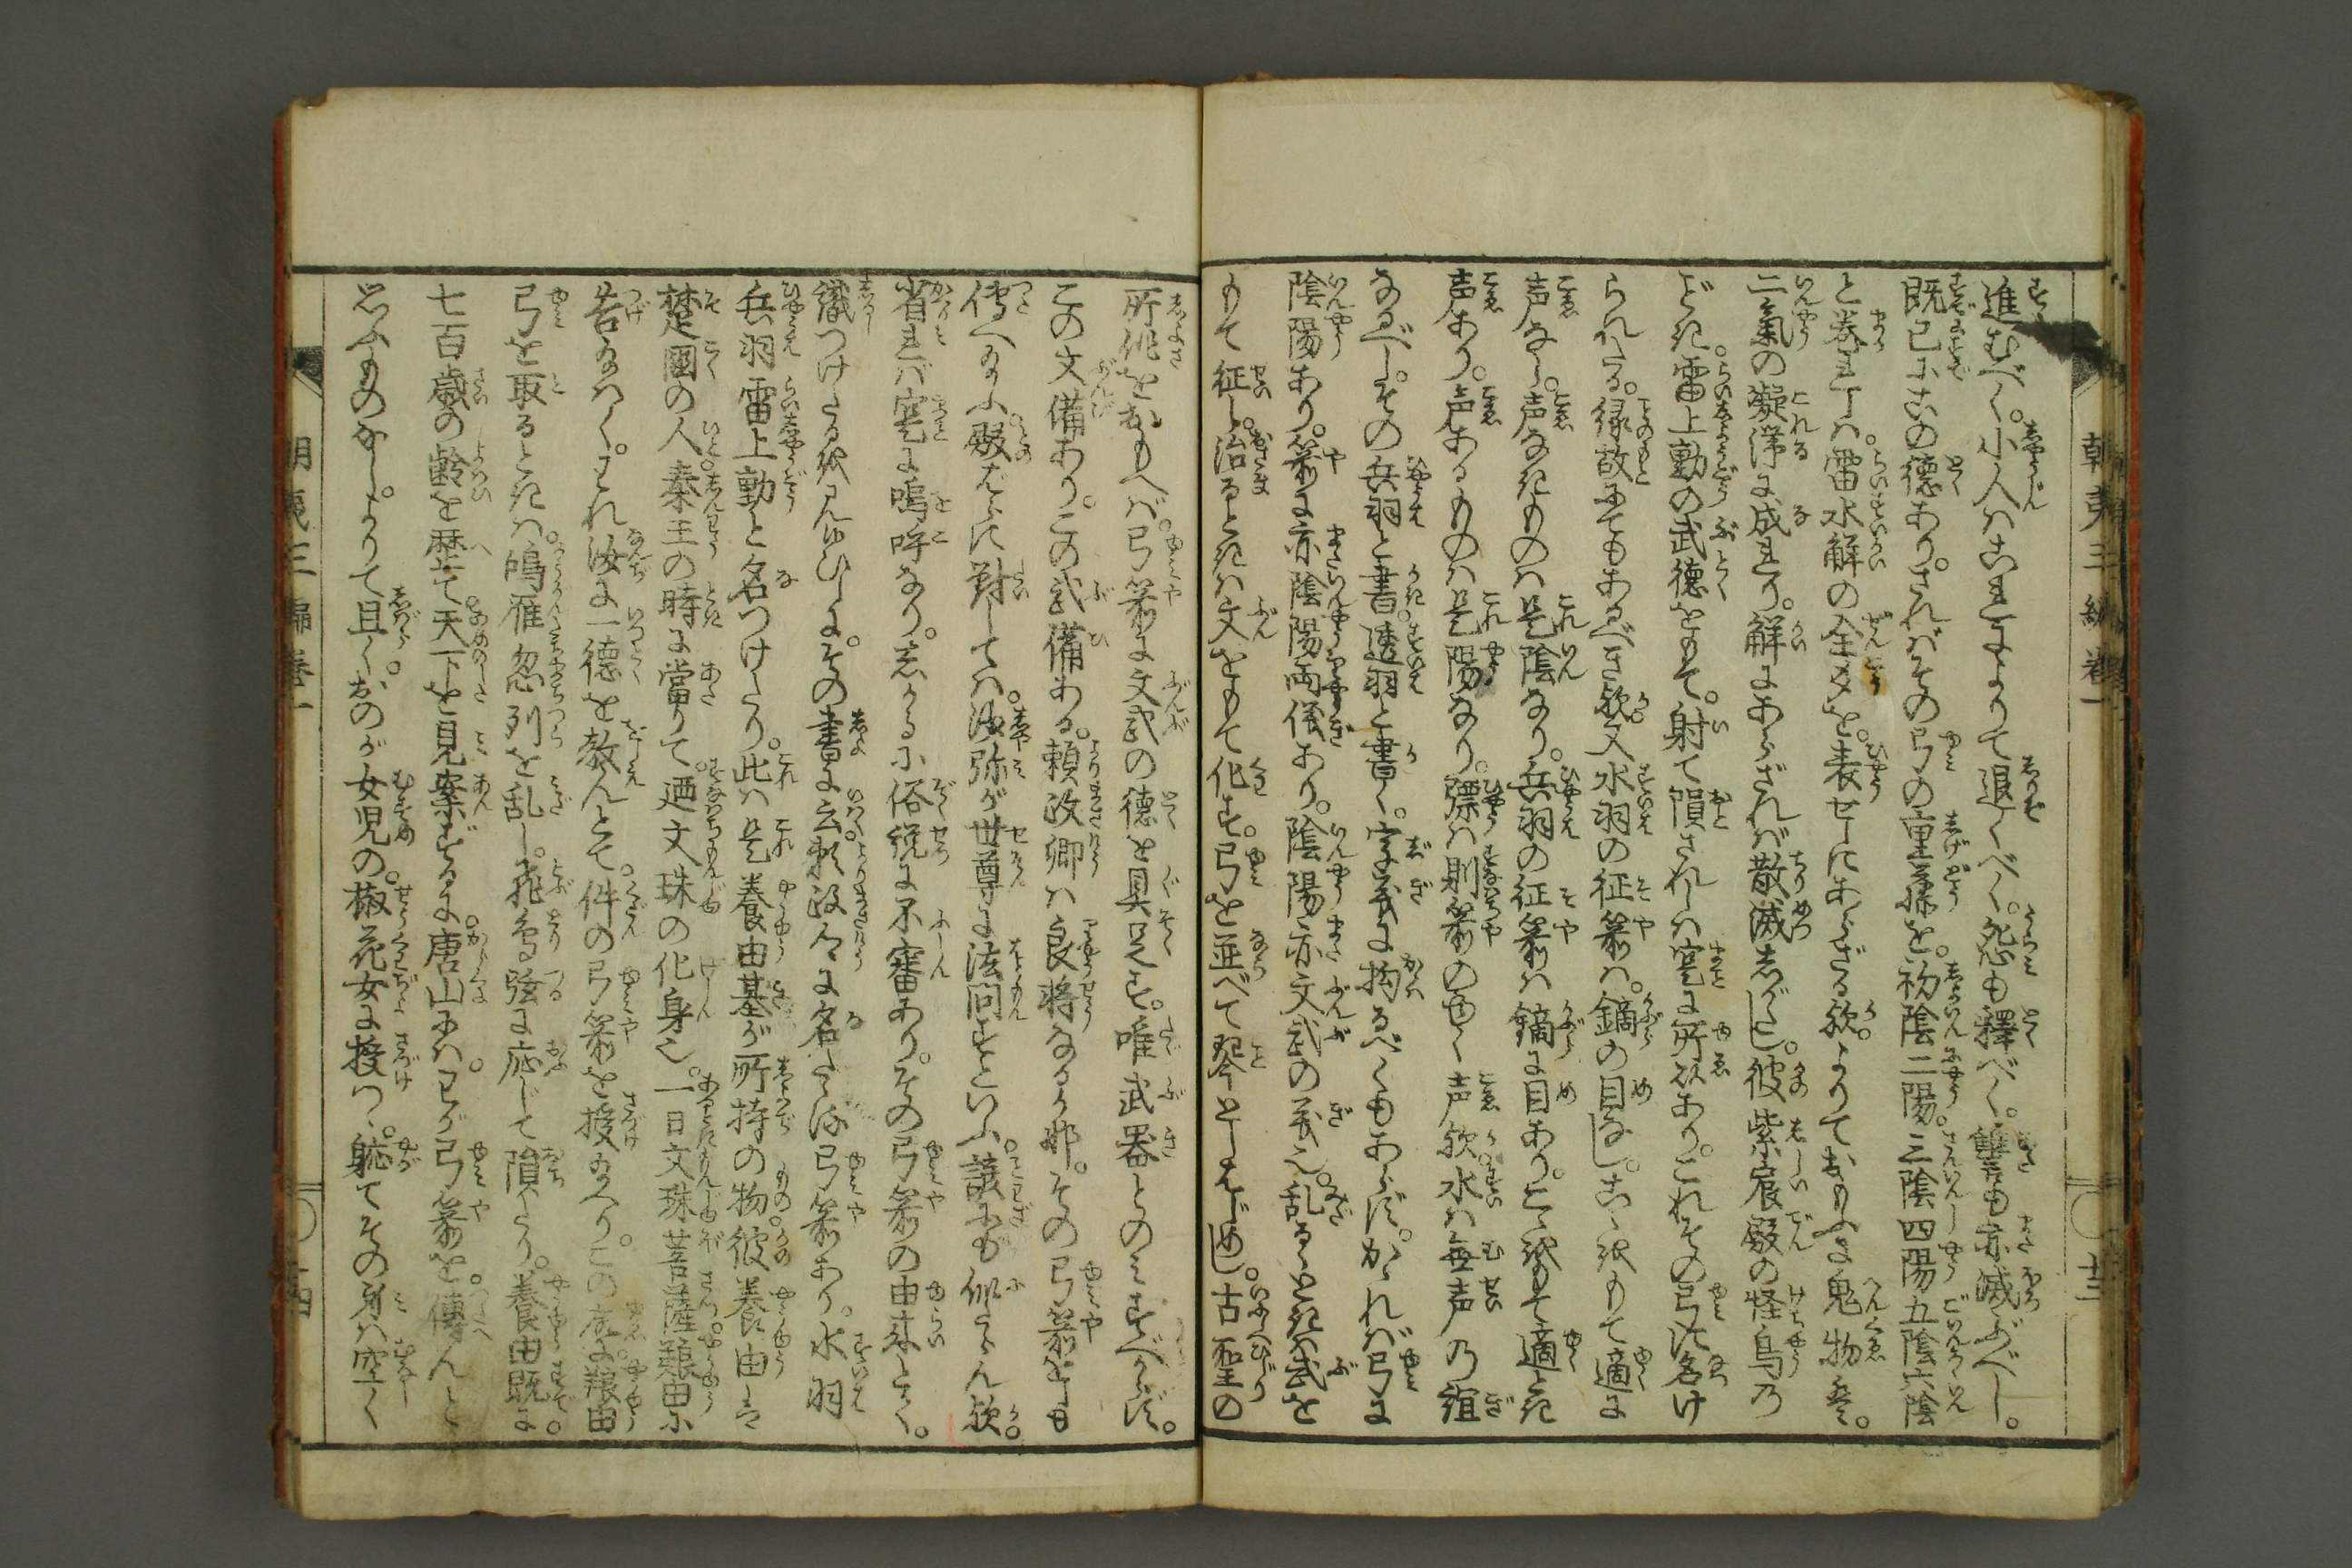 進むべく。小人はこれによりて退くべく。怨も釋べく。讐も亦滅ぶべし。
既已にこの徳あり。さればその弓の重藤を。初陰二陽。三陰四陽五陰六陰
と巻れしは。雷水解の全文を。表せしにあらざる欤。よりておもふに鬼物妖。
二氣の凝滞に成れり。解にあらざれば散滅しがたし。彼紫宸殿の怪鳥乃
ごとき。雷上動の武徳をもて。射て隕されしは寔に所以あり。これその弓に名け
られたる。縁故にてもあるべき欤。又水羽の征箭は。鏑の目なし。こゝをもて適に
声なし。声なきものは是陰なり。兵羽の征箭は鏑に目あり。こゝをもて適とき
声あり。声あるものは是陽なり。驃は則箭の也く声欤。水は無声乃紐
なるべし。その兵羽と書。透羽と書く。字義に拘るべくもあらず。かゝれば弓に
陰陽あり。箭に亦陰陽両儀あり。陰陽亦文武の義也。乱るゝときは武を
もて征し。治るときは文をもて化す。弓を並べて琴としはじめし。古聖の
所作をおもへば。弓箭に文武の徳を具足す。唯武器とのみすべからず。
この文備あり。この武備ある。頼政卿は良將なるか那。その弓箭をしも
傳へたる小殿ばらに對しては。沙弥が世尊に法問すといふ。譏にも似たらん欤。
省れば寔に嗚呼なり。しかるに俗説に不審あり。その弓箭の由来とく。
識つけたるを見ゆひしに。その書に云。頼政卿に名たゝる弓箭あり。水羽
兵羽雷上動と名つけたり。此は是養由基が所持の物。彼養由は
楚國の人秦王の時に當りて。廼文珠の化身也。一日文珠菩薩養由に
告給はく。われ汝に一徳を教んとて。件の弓箭を授給へり。この故に養由
弓を取るときは。鳴雁忽列を乱し。飛鳥弦に應じて隕たり。養由既に
七百歳の齢を歴て。天下を見案ずるに。唐山には。わが弓箭を。傳んと
思ふものなし。よりて且く。おのが女児の。椒花女に授け。躬てその身は空く
朝夷三編巻一 十三
朝夷三編巻一 十四